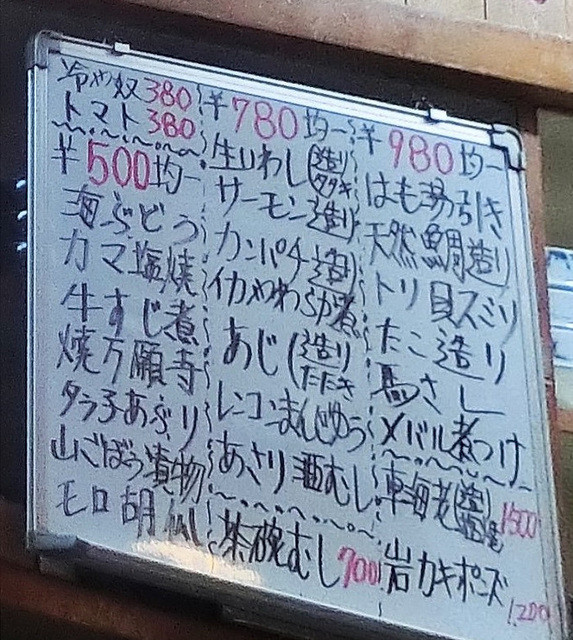 冷やっ奴 380
トマト 380
¥500均一
海ぶどう
カマ塩焼
牛すじ煮
焼万願寺
タラ子あぶり
山ごぼう漬物
モロ胡瓜
¥780均一
生いわし(造り タタキ
サーモン造り
カンパチ造り
イカやわらか煮
あじ(造り たたき
レンコンまんじゅう
あさり酒むし
茶碗むし 700
¥980均一
はも湯引き
天然鯛造り
トリ貝スミソ
たこ造り
馬さし
メバル煮つけ
車海老(造り 塩焼 1500
岩カキポン酢 1,200